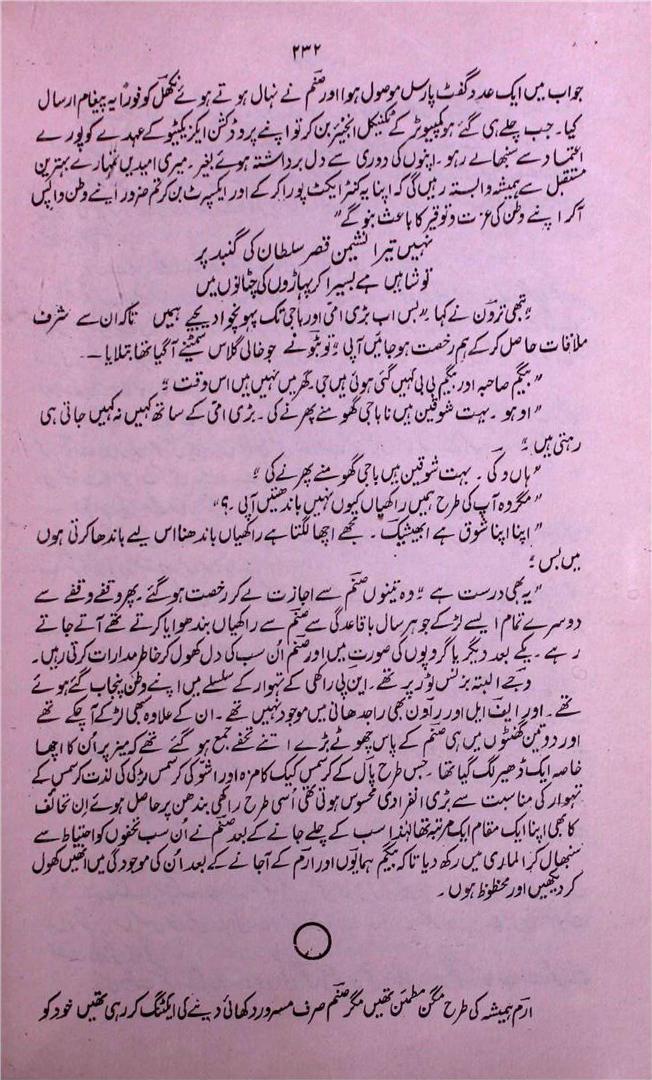 ۲۳۲
جواب میں ایک عدد گفٹ پارسل موصول ہوا اور صنم نے نہال ہوتے ہوئے نکھل کو فوراً یہ پیغام ارسال
کیا۔ جب چلے ہی گئے ہو کمپیوٹر کے ٹکنیکل انجینئر بن کر تو اپنے پروڈکشن ایکزیکیٹو کے عہدے کو پورے
اعتماد سے سنبھالے رہو۔ اپنوں کی دوری سے دل برداشتہ ہوئے بغیر۔ میری امیدیں تمہارے بہترین
مستقبل سے ہمیشہ وابستہ رہیں گی کہ اپنا یہ کنٹراکٹ پورا کر کے اور ایکسپرٹ بن کر تم ضرور اپنے وطن واپس
آکر اپنے وطن کی عزت و توقیر کا باعث بنو گے"
نہیں تیرا نشیمن قصر سلطان کی گنبد پر
تو شاہیں ہے بسیرا کر پہاڑوں کی چٹانوں میں
"تبھی نروَن نے کہا۔ "بس اب بڑی امی اور باجی تک پہونچوا دیجیے ہمیں تاکہ ان سے شرف
ملاقات حاصل کر کے ہم رخصت ہو جائیں آپی" تو بُو نے جو خالی گلاس سمٹنے آ گیا تھا بتلایا۔۔
"بیگم صاحبہ اور بیگم بی بی کہیں گئی ہوئی ہیں جی۔ گھر میں نہیں ہیں اس وقت"
"اوہو۔ بہت شوقین ہیں نا باجی گھومنے پھرنے کی۔ بڑی امی کے ساتھ کہیں نہ کہیں جاتی ہی
رہتی ہیں"
"ہاں وکی۔ بہت شوقین ہیں باجی گھومنے پھرنے کی"
"مگر وہ آپ کی طرح ہمیں راکھیاں کیوں نہیں باندھتیں آپی۔؟"
"اپنا اپنا شوق ہے ابھیشیک۔ مجھے اچھا لگتا ہے راکھیاں باندھنا اس لیے باندھا کرتی ہوں
میں بس"
"یہ بھی درست ہے" وہ تینوں صنم سے اجازت لے کر رخصت ہو گئے۔ پھر وقفے وقفے سے
دوسرے تمام ایسے لڑکے جو ہر سال باقاعدگی سے صنم سے راکھیاں بندھوایا کرتے تھے آتے جاتے
رہے۔ یکے بعد دیگر یا گروپوں کی صورت میں اور صنم اُن سب کی دل کھول کر خاطر مدارات کرتی رہیں۔
وجے البتہ بزنس ٹور پر تھے۔ این پی راکھی کے تہوار کے سلسلے میں اپنے وطن پنجاب گئے ہوئے
تھے۔ اور ایف ایل اور راون بھی راجدھانی میں موجود نہیں تھے۔ ان کے علاوہ سبھی لڑکے آ چکے تھے
اور دو تین گھنٹوں میں ہی صنم کے پاس چھوٹے بڑے اتنے تحفے جمع ہو گئے تھے کہ میز پر اُن کا اچھا
خاصہ ایک ڈھیر لگ گیا تھا۔ جس طرح پال کے کرسمس کیک کا مزہ اور اشو کی کرسمس لڑکی کی لذت کرسمس کے
تہوار کی مناسبت سے بڑی انفرادی محسوس ہوتی تھی اُسی طرح راکھی بندھن پر حاصل ہوئے اِن تحائف
کا بھی اپنا ایک مقام ایک مرتبہ تھا لہٰذا سب کے چلے جانے کے بعد صنم نے اُن سب تحفوں کو احتیاط سے
سنبھال کر الماری میں رکھ دیا تاکہ بیگم ہمایوں اور ارم کے آجانے کے بعد اُن کی موجودگی میں انھیں کھول
کر دیکھیں اور محظوظ ہوں۔
ارم ہمیشہ کی طرح مگن مطمئن تھیں مگر صنم صرف مسرور دکھائی دینے کی ایکٹنگ کر رہی تھیں خود کو